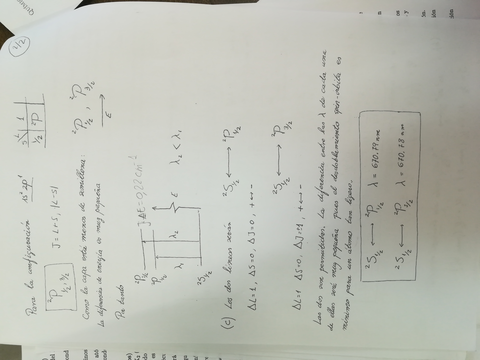 1/2
Para la configuración 1s² 2p¹
S L 1
1/2 ²P
²P 1/2, 3/2 J = L+S, |L-S|
²P 1/2, ²P 3/2
E
Como la capa está menos de semillena:
La diferencia de energía es muy pequeña
Por tanto
²P 3/2
²P 1/2
ΔE = 0,22 cm⁻¹
λ₁ λ₂ E λ₂ < λ₁
²S 1/2
(c) Las dos líneas serán
²S 1/2 ⟷ ²P 1/2
ΔL=1, ΔS=0, ΔJ=0, + ⟷ -
²S 1/2 ⟷ ²P 3/2
ΔL=1 ΔS=0, ΔJ=1, + ⟷ -
Las dos son permitidas. La diferencia entre las λ de cada una
de ellas será muy pequeña pues el desdoblamiento spin-órbita es
minúsculo para un átomo tan ligero.
²S 1/2 ⟷ ²P 1/2 λ = 670.79 nm
²S 1/2 ⟷ ²P 3/2 λ = 670.78 nm